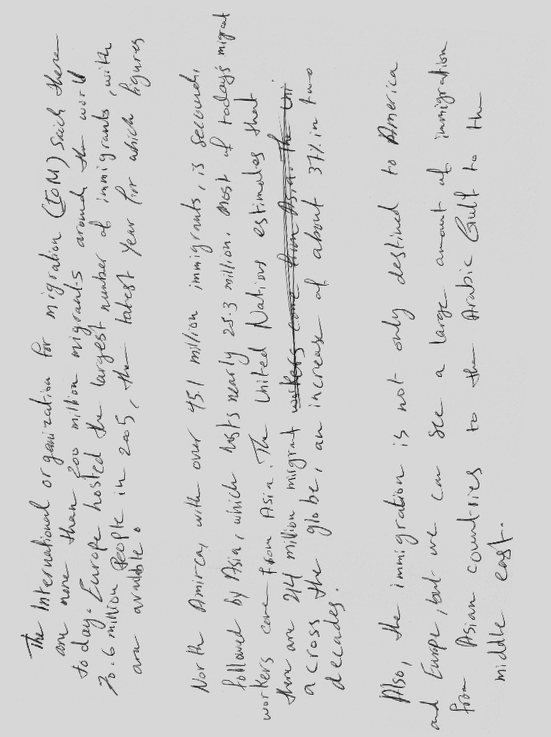 The International organization for migration (IOM) saich there
are more than 200 million migrants around the world
today. Europe hosted the largest number of immigrants, with
70.6 million People in 2005, the latest year for which figures
are available.
North Amirca, with over 45.1 million immigrants, is secound,
followed by Asia, which hosts nearly 25.3 million. Most of today's migrat
workers come from Asia. The United Nations estimates that
there are 214 million migrat workers come from Asia. The Uni
across the globe, an increase of about 37% in two
decades.
Also, the immigration is not only destined to America
and Europe, but we can see a large amount of immigration
from Asian countries to the Arabic Gulf to the
middle east.